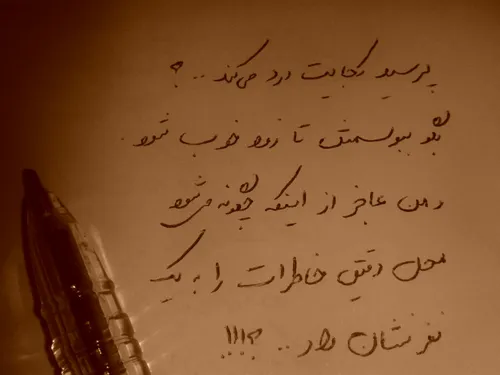 پرسید کجایت درد می‌کند..؟
بگو ببوسمش تا زود خوب شود.
و من عاجز از اینکه چگونه می‌شود
محل دقیق خاطرات را به یک
نفر نشان داد..؟!!!